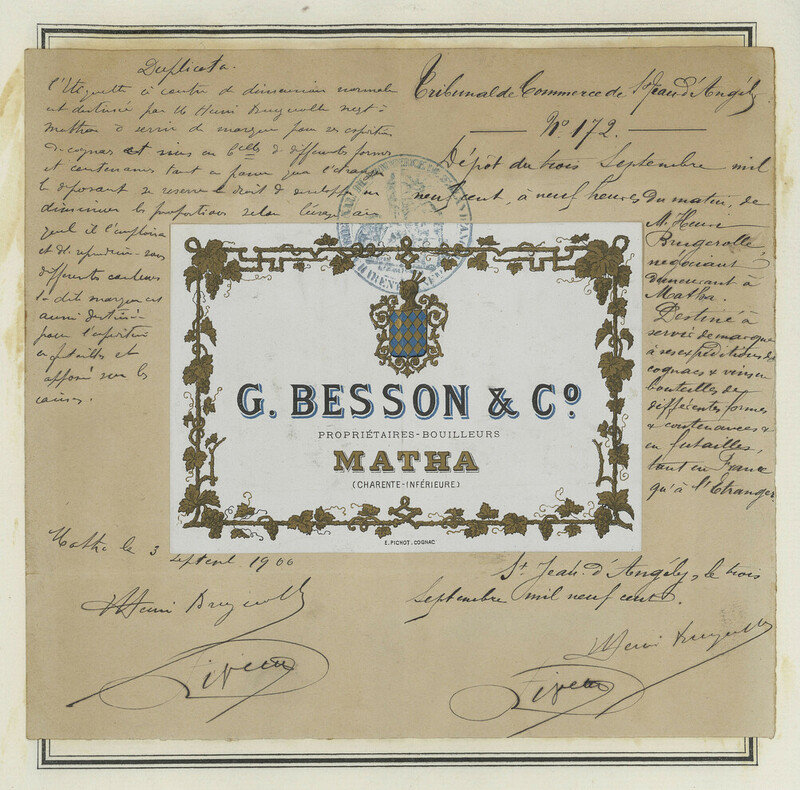 Duplicata.
l'étiquette ci contre de dimension normale
est destinée par M. Henri Brugerolle negt à
Matha à servir de marque pour ses expéditions
de cognac et vins en blles de différentes formes
et contenances tant en france que l'étranger
le déposant se réserve le droit de développer ou
diminuer les proportions selon l'usage au
quel il l'emploiera
et de reproduire sous
différentes couleurs
la dite marque est
aussi destinée
pour l'expédition
en futailles et
apposée sur les
caisses.
Matha le 3
septembre 1900
Henri Brugerolle
Tribunal de Commerce de St Jean d'Angély
No 172.
Dépôt du trois Septembre mil
neuf cent, à neuf heures du matin, de
M. Henri
Brugerolle
négociant
demeurant à
Matha.
Destiné à
servir de marque
à ses expéditions de
cognacs & vins en
bouteilles de
différentes formes
& contenances &
en futailles,
tant en France
qu'à l'Etranger.
St Jean d'Angély, le trois
Septembre mil neuf cent.
Henri Brugerolle
G. BESSON & Co
PROPRIÉTAIRES-BOUILLEURS
MATHA
(CHARENTE-INFÉRIEURE)
E. PICHOT. COGNAC